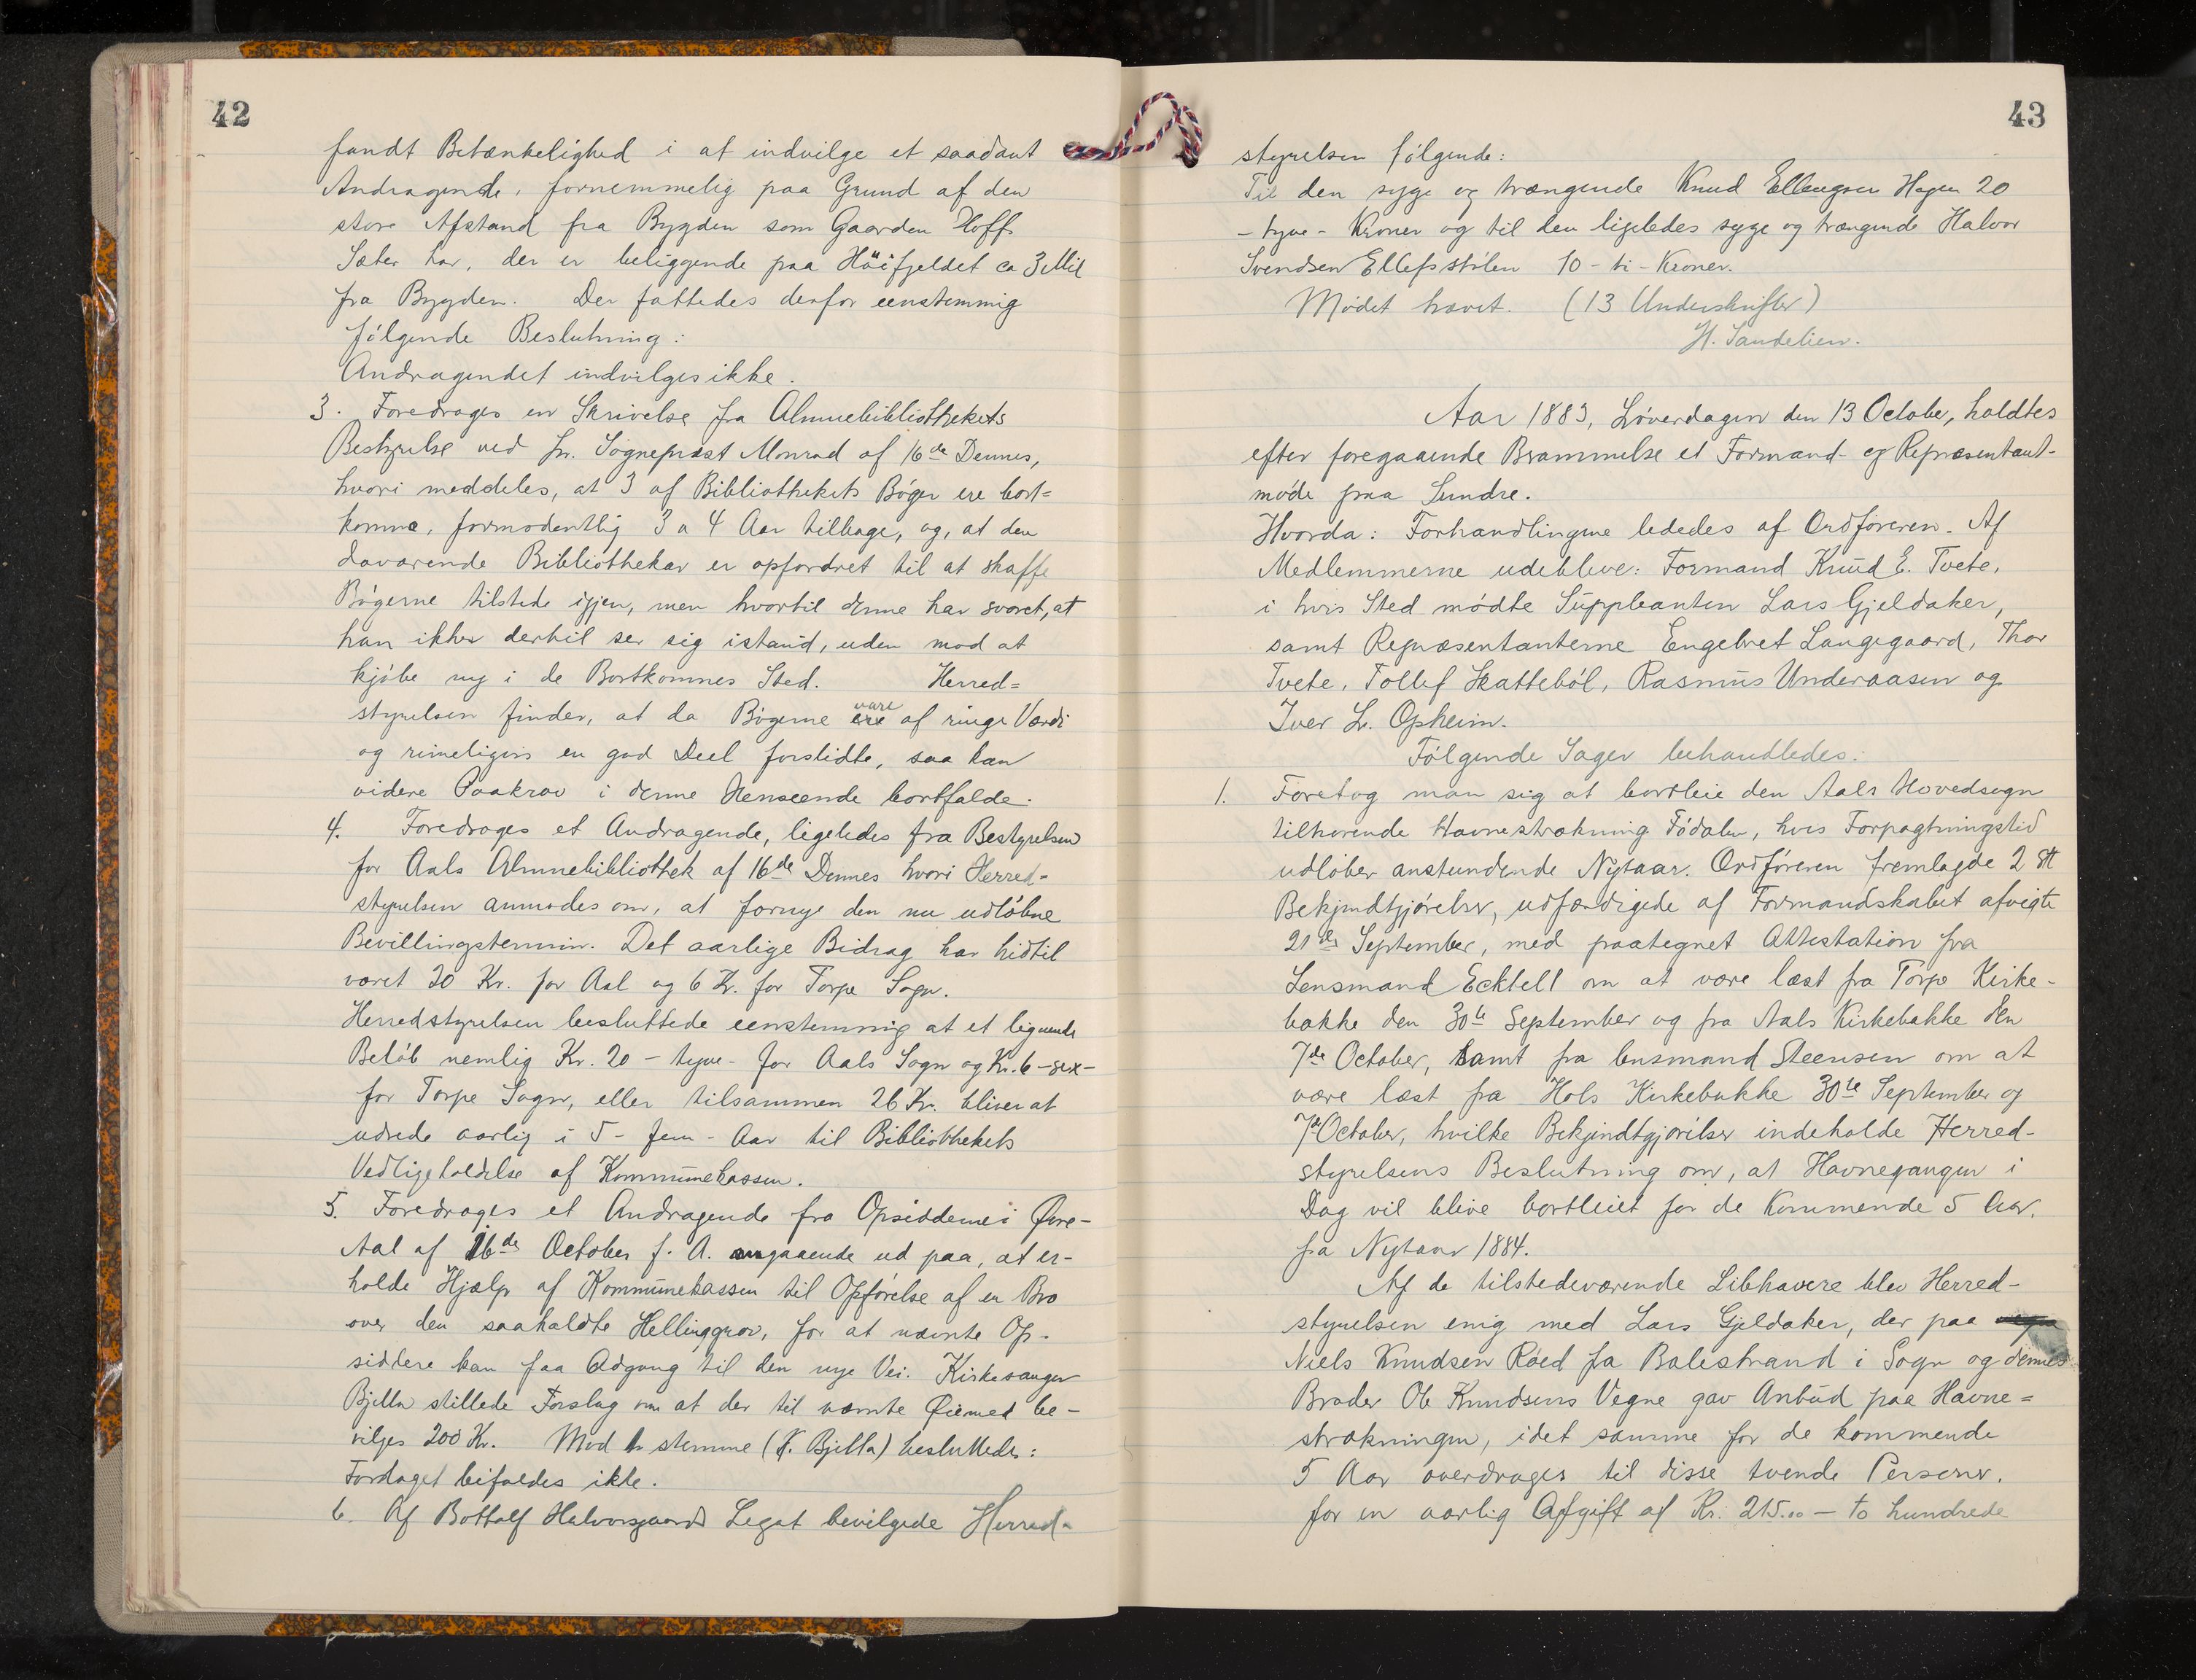 42
fandt Betænkelighed i at indvilge et saadant
Andragende, fornemmelig paa Grund af den
store Afstand fra Bygden som Gaarden Hoff
Sæter har, der er beliggende paa Höifjeldet ca 3 Mil
fra Bygden. Der fattedes derfor eenstemmig
følgende Beslutning:
Andragendet indvilges ikke.
3. Foredroges en Skrivelse fra Almuebibliothekets
Bestyrelse ved hr. Sognepræst Monrad af 16de Dennes,
hvori meddeles, at 3 af Bibliothekets Bøger ere bort=
komne, formodentlig 3 a 4 Aar tilbage, og, at den
daværende Bibliothekar er opfordret til at skaffe
Bøgerne tilstede igjen, men hvortil denne har svaret, at
han ikke dertil ser sig istand, uden mod at
kjøbe ny i de Bortkomnes Sted. Herred=
styrelsen finder, at da Bøgerne ere vare af ringe Værdi
og rimeligvis en god Deel forslidte, saa kan
videre Paakrav i denne Henseende bortfalde.
4. Foredroges et Andragende, ligeledes fra Bestyrelsen
for Aals Almuebibliothek af 16de Dennes hvori Herred-
styrelsen anmodes om, at fornye den nu udløbne
Bevillingstermin. Det aarlige Bidrag har hidtil
været 20 Kr. for Aal og 6 Kr. for Torpe Sogn.
Herredstyrelsen besluttede eenstemmig at et lignende
Beløb nemlig Kr. 20 - tyve - for Aals Sogn og Kr. 6 - sex -
for Torpe Sogn, eller tilsammen 26 Kr. bliver at
udrede aarlig i 5 - fem - Aar til Bibliothekets
Vedligeholdelse af Kommunekassen.
5. Foredroges et Andragende fra Opsidderne i Øvre-
Aal af 16de October f. A. angaaende ud paa, at er-
holde Hjælp af Kommunekassen til Opførelse af en Bro
over den saakaldte Hellinggrov, for at nævnte Op-
siddere kan faa Adgang til den nye Vei. Kirkesanger
Bjella stillede Forslag om at der til nævnte Øiemed be-
vilges 200 Kr. Mod 1 stemme (K. Bjella) besluttedes:
Forslaget bifaldes ikke.
6. Af Bottolf Halvorsgaards Legat bevilgede Herred-
43
styrelsen følgende:
Til den syge og trængende Knud Ellingsen Hagen 20
- tyve - Kroner og til den ligeledes syge og trængende Halvor
Svendsen Ellefsstølen 10 - ti - Kroner.
Mødet hævet. (13 Underskrifter)
H. Sandelien.
Aar 1883, Løverdagen den 13 October, holdtes
efter foregaaende Berammelse et Formand- og Repræsentant-
møde paa Sundre.
Hvorda: Forhandlingene lededes af Ordføreren. Af
Medlemmerne udebleve: Formand Knud E. Tvete,
i hvis Sted mødte Suppleanten Lars Gjeldaker,
samt Repræsentanterne Engebret Langegaard, Thor
Tvete, Tollef Skattebøl, Rasmus Underaasen og
Iver L. Opheim.
Følgende Sager behandledes:
1. Foretog man sig at bortleie den Aals Hovedsogn
tilhørende Havnestrækning Fødalen, hvis Forpagtningstid
udløber anstundende Nytaar. Ordføreren fremlagde 2 st
Bekjendtgjørelser, udfærdigede af Formandskabet afvigte
21de September, med paategnet Attestation fra
Lensmand Ecktell om at være læst fra Torpe Kirke-
bakke den 30te September og fra Aals Kirkebakke den
7de October, samt fra lensmand Steensen om at
være læst fra Hols Kirkebakke 30te September og
7de October, hvilke Bekjendtgjørelser indeholde Herred-
styrelsens Beslutning om, at Havnegangen i
Dag vil blive bortleiet for de kommende 5 Aar,
fra Nytaar 1884.
Af de tilstedeværende Libhavere blev Herred-
styrelsen enig med Lars Gjeldaker, der paa
Niels Knudsen Røed fra Balestrand i Sogn og dennes
Broder Ole Knudsens Vegne gav Anbud paa Havne=
strækningen, idet samme for de kommende
5 Aar overdrages til disse tvende Personer,
for en aarlig Afgift af Kr. 215.00 - to hundrede